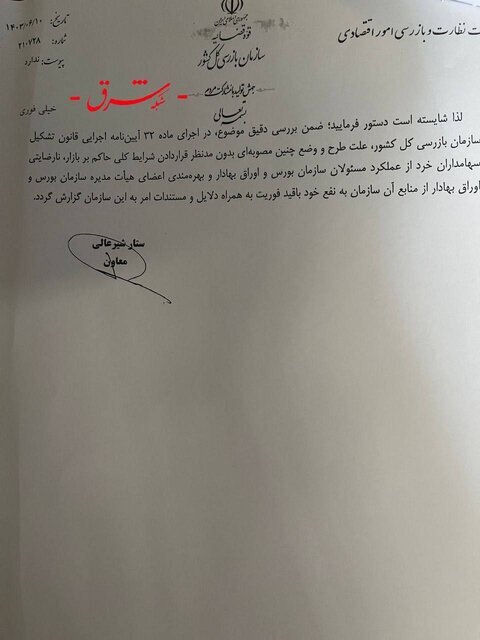 جمهوری اسلامی ایران
قوه قضائیه
سازمان بازرسی کل کشور
ت نظارت و بازرسی امور اقتصادی
تاریخ: ۱۴۰۳/۰۶/۱۰
شماره: ۲۱۰۷۲۸
پیوست: ندارد
خیلی فوری
جهش تولید با مشارکت مردم
بسمه تعالی
- شبکه شرق -
لذا شایسته است دستور فرمایید؛ ضمن بررسی دقیق موضوع، در اجرای ماده ۳۲ آیین‌نامه اجرایی قانون تشکیل
سازمان بازرسی کل کشور، علت طرح و وضع چنین مصوبه‌ای بدون مدنظر قراردادن شرایط کلی حاکم بر بازار، نارضایتی
سهامداران خرد از عملکرد مسئولان سازمان بورس و اوراق بهادار و بهره‌مندی اعضای هیأت مدیره سازمان بورس و
اوراق بهادار از منابع آن سازمان به نفع خود باقید فوریت به همراه دلایل و مستندات امر به این سازمان گزارش گردد.
ستار شیرعالی
معاون